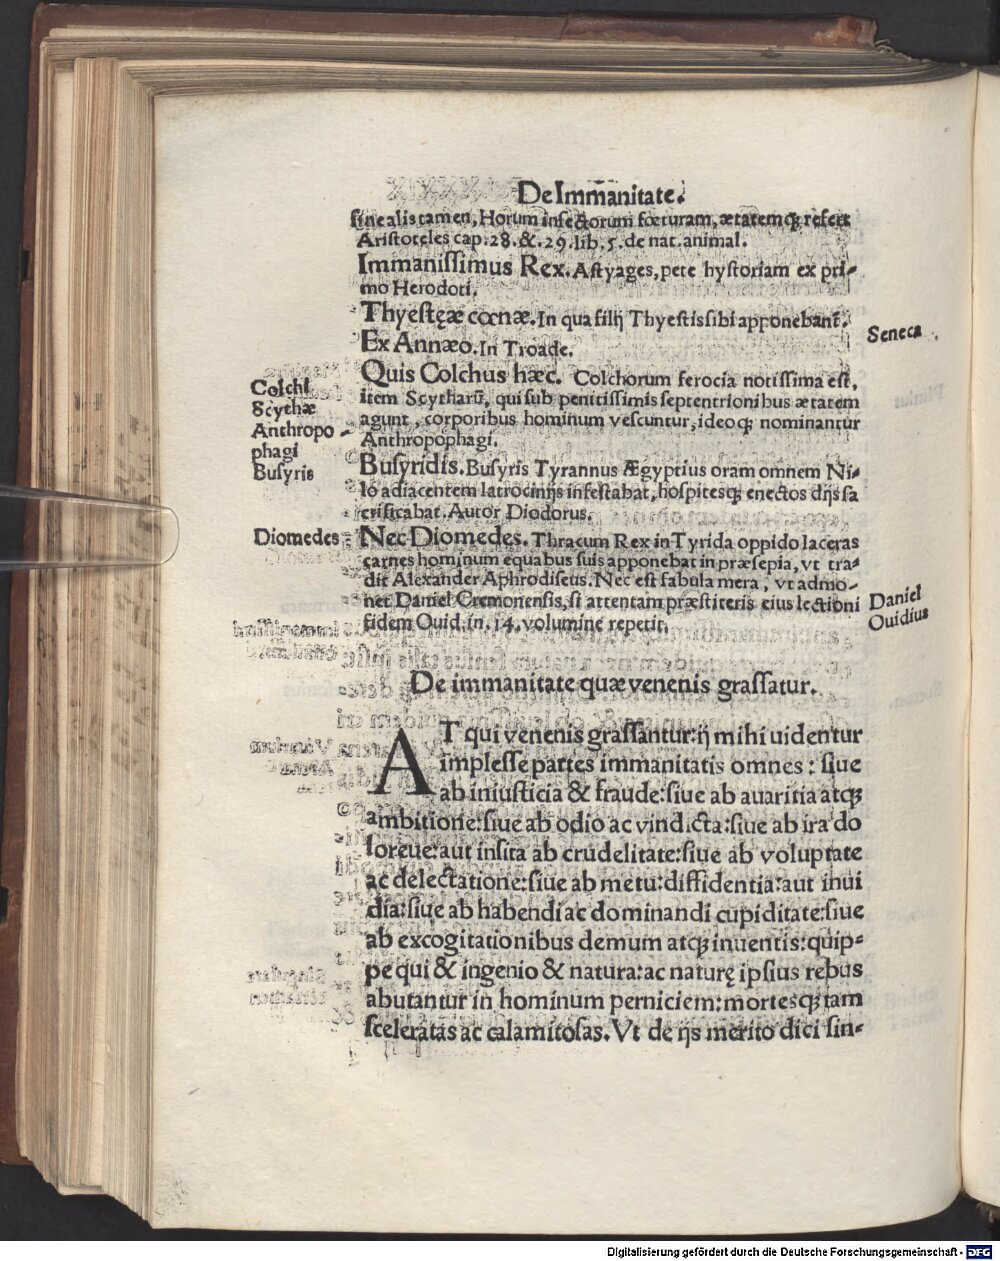 De Immanitate.
sine alis tamen, Horum insectorum fœturam, ætatemqꝫ refert
Aristoteles cap. 28. &. 29. lib. 5. de nat. animal.
Immanissimus Rex. Astyages, pete hystoriam ex pri⸗
mo Herodoti.
Thyestęæ cœnæ. In qua filij Thyestis sibi apponebant̃.
Seneca
Ex Annæo. In Troade.
Quis Colchus hæc. Colchorum ferocia notissima est,
Colchi
item Scytharũ, qui sub penitissimis septentrionibus ætatem
Scythæ
agunt, corporibus hominum vescuntur, ideoqꝫ nominantur
Anthropo⸗
Anthropophagi.
phagi
Busyridis. Busyris Tyrannus Ægyptius oram omnem Ni⸗
Busyris
lo adiacentem latrocinijs infestabat, hospitesqꝫ enectos dijs sa
crificabat. Autor Diodorus.
Diomedes
Nec Diomedes. Thracum Rex in Tyrida oppido laceras
carnes hominum equabus suis apponebat in præsepia, vt tra⸗
dit Alexander Aphrodiseus. Nec est fabula mera, vt admo⸗
net Daniel Cremonensis, si attentam præstiteris eius lectioni
Daniel
fidem Ouid. in. 14. volumine repetit.
Ouidius
De immanitate quæ venenis grassatur.
AT qui venenis grassantur: ij mihi uidentur
implesse partes immanitatis omnes: siue
ab iniusticia & fraude: siue ab auaritia atqꝫ
ambitione: siue ab odio ac vindicta: siue ab ira do
loreue: aut insita ab crudelitate: siue ab voluptate
ac delectatione: siue ab metu: diffidentia: aut inui
dia: siue ab habendi ac dominandi cupiditate: siue
ab excogitationibus demum atqꝫ inuentis: quip⸗
pe qui & ingenio & natura: ac naturę ipsius rebus
abutantur in hominum perniciem: mortesqꝫ tam
sceleratas ac calamitosas. Vt de ijs merito dici sin⸗
Digitalisierung gefördert durch die Deutsche Forschungsgemeinschaft - DFG